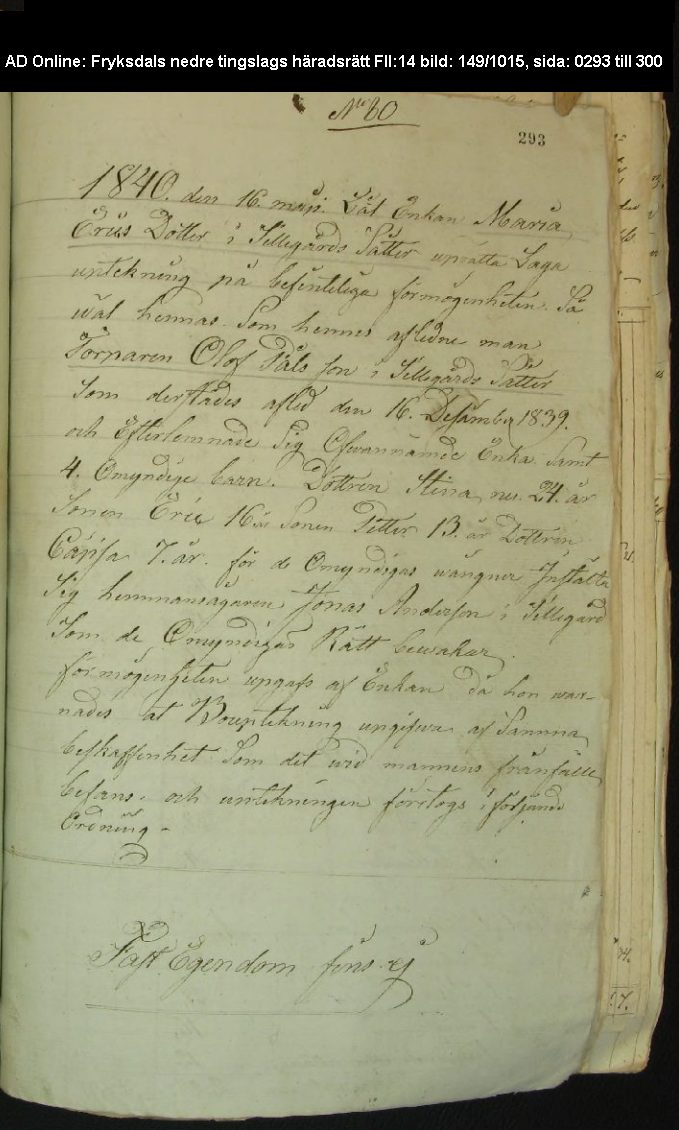 AD Online: Fryksdals nedre tingslags häradsrätt FII:14 bild: 149/1015, sida: 0293 till 300
No 80
293
1840. den 16. maji. Lät Enkan Maria
Erics Dotter i Sillegårds Sätter uprätta Laga
uptekning på befinteliga förmögenheten. Så
wäl hennas. Som hennes aflidne man
Torparen Olof Påls son i Sillegårds Sätter
Som derstädes afled den 16. Desämber 1839.
och Efterlemnade Sig Ofwannämde Enka. Samt
4. Omyndige barn. Dottren Stina, nu. 24. år
Sonen Eric 16 år Sonen Petter 13. år Dottren
Cajsa 7. år. för de Omyndigas wägnar Instälte
Sig hemmansägaren Jonas Anderson i Sillegård
Som de Omyndigas Rätt bewakar.
förmögenheten upgafs af Enkan då hon war-
nades at Bouptekning upgifwa af Samma
beskaffenhet Som det wid mannens frånfälle
befans. och uptekningen företogs i följande
Ordning -
Fast Egendom fins ej